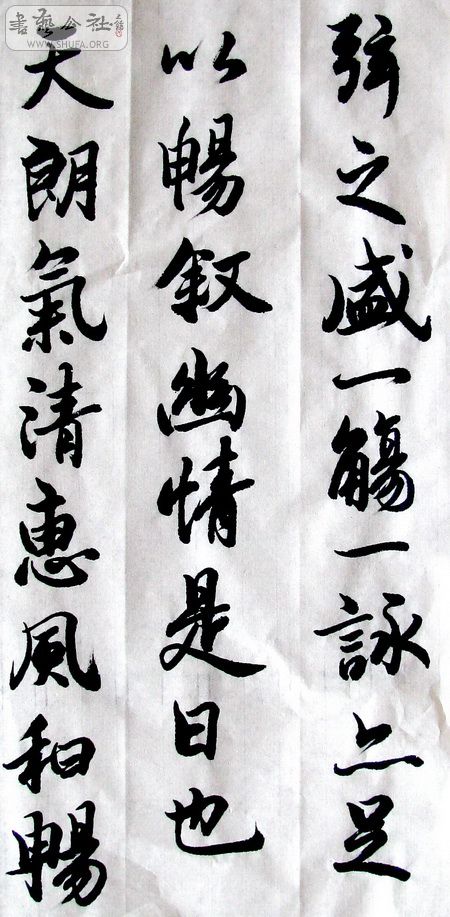 弦之盛一觴一詠亦足
以暢叙幽情是日也
天朗氣清惠風和暢
書藝公社
WWW.SHUFA.ORG